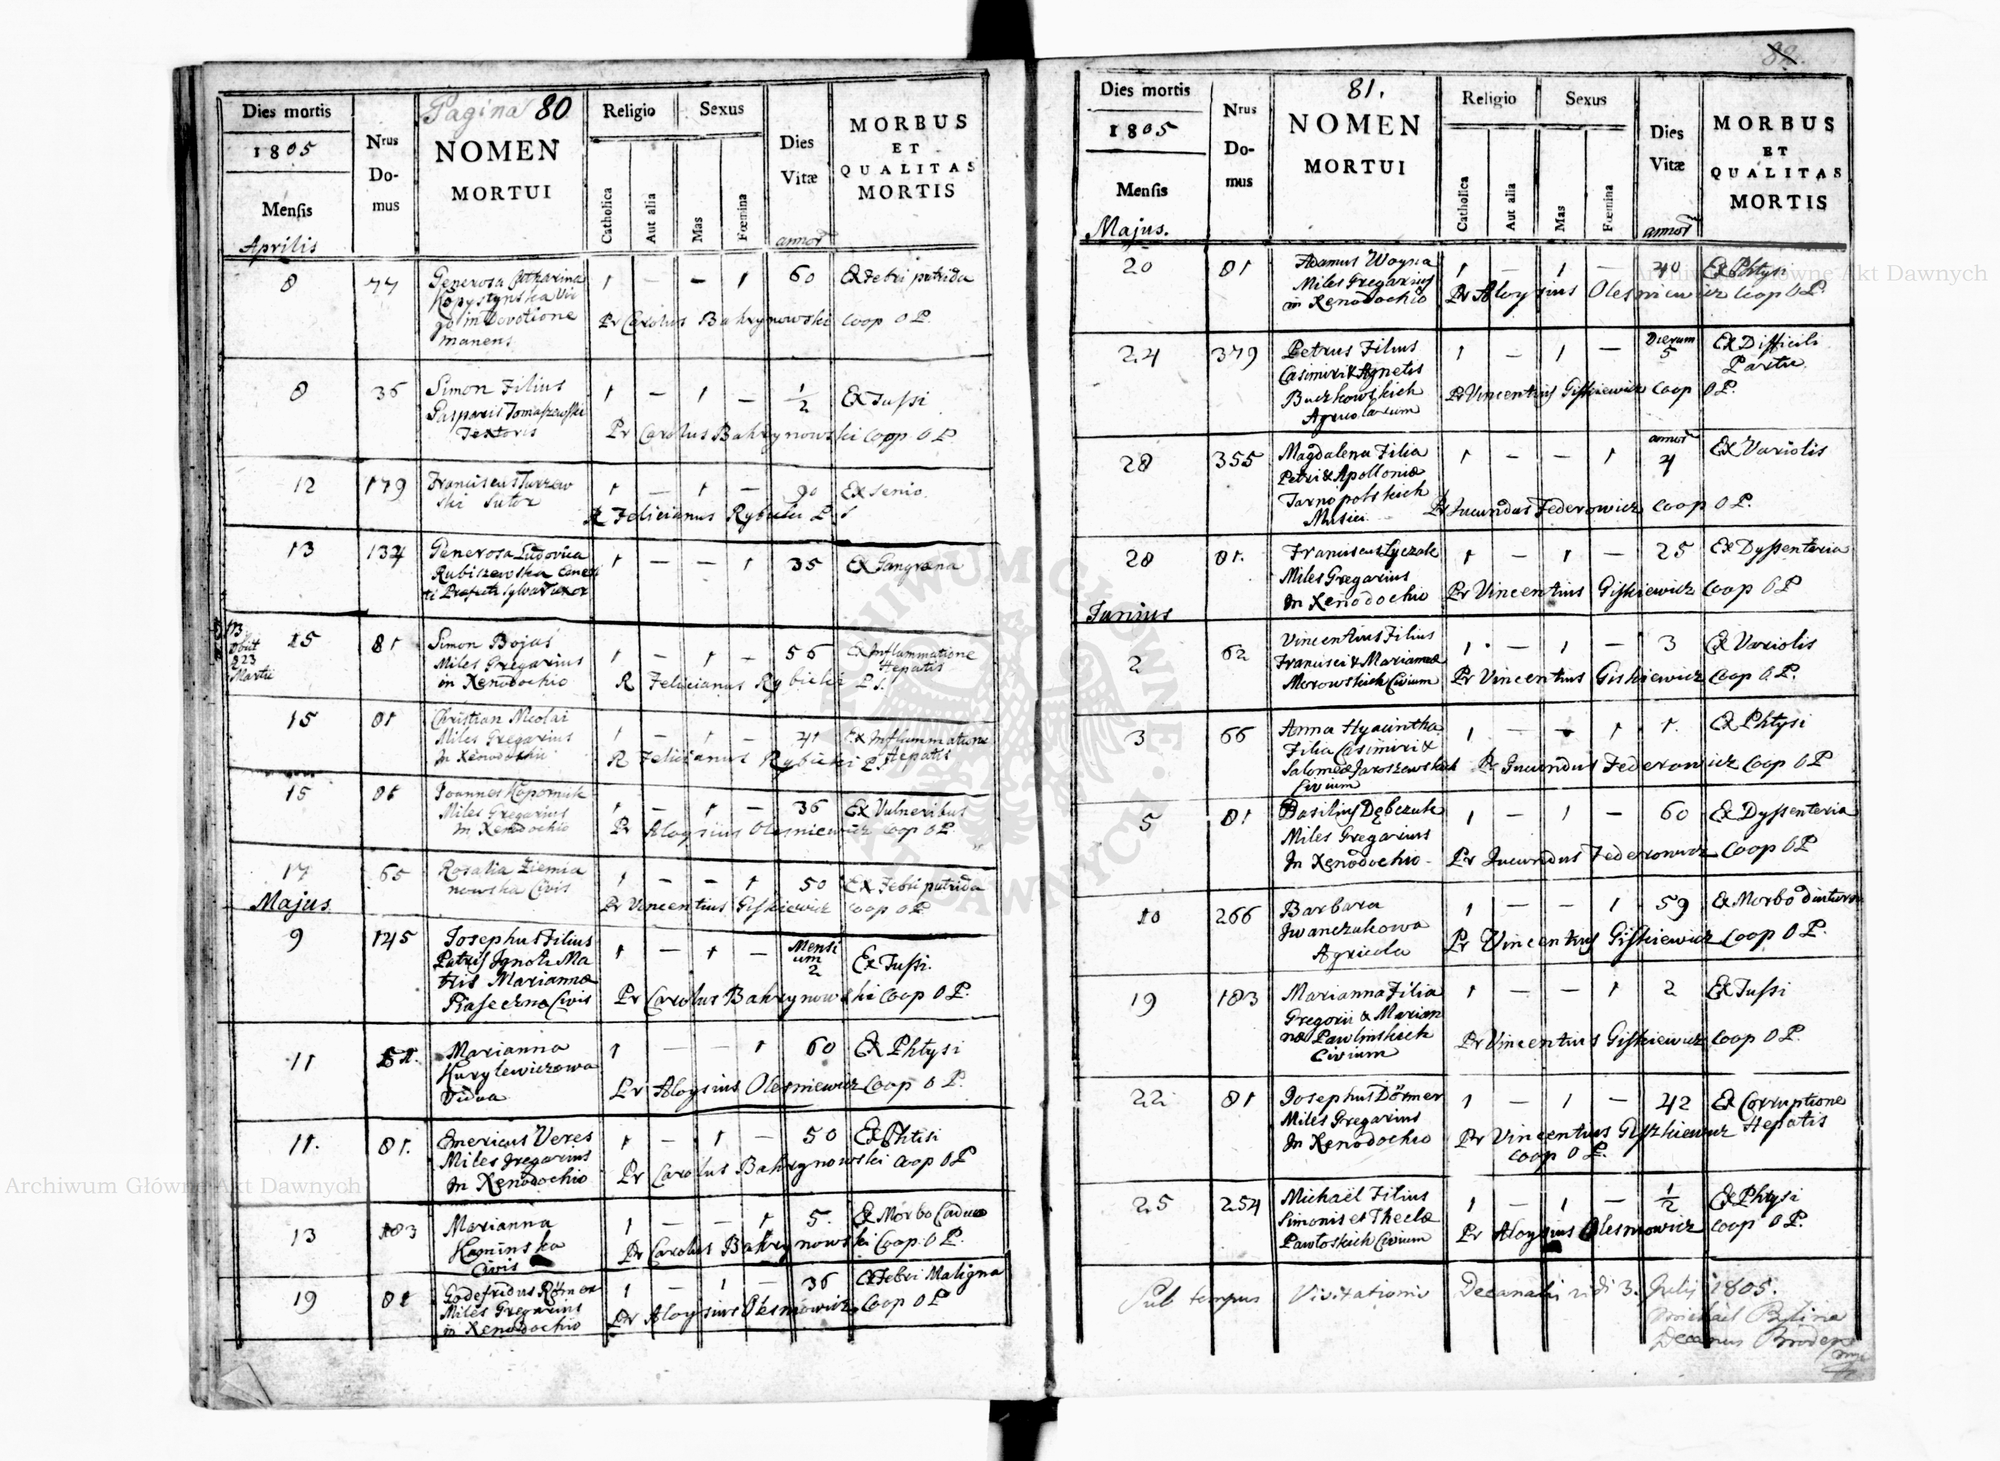 Pagina 80
Dies mortis
1805
Mensis
Aprilis
Nrus
Do-
mus
NOMEN
MORTUI
Religio
Sexus
Catholica
Aut alia
Mas
Fœmina
Dies
Vitæ
annor
MORBUS
ET
QUALITAS
MORTIS
8 77 Generosa Catharina 1 — — 1 60 Ex Febri putrida
Kopystynska Vir
go in Devotione Pr Carolus Bahrynowski Coop O P.
manens
8 36 Simon Filius 1 — 1 — 1/2 Ex Tussi
Gasparis Tomaszewski
Textoris Pr Carolus Bahrynowski Copp O P.
12 179 Franciscus Turzew 1 — 1 — 90 Ex Senio.
ski Sutor R Felicianus Rybicki P. S
13 134 Generosa Ludovica 1 — — 1 35 Ex Gangræna
Rubiszewska
Uxor
Obiit
23
Martii
15 81 Simon Bojas 1 — 1 — 56 Ex Inflammatione
Miles Gregarius Hepatis
in Xenodochio R Felicianus Rybicki P. S.
15 81 Christian Nicolai 1 — 1 — 41 Ex Inflammatione
Miles Gregarius Hepatis
in Xenodochio R Felicianus Rybicki P. S.
15 81 Joannes Kopornik 1 — 1 — 36 Ex Vulneribus
Miles Gregarius
in Xenodochio Pr Aloysius Olesniewicz Coop O P.
17 65 Rosalia Ziemia 1 — — 1 50 Ex Febri putrida
nowska Civis Pr Vincentius Giskiewicz Coop O P.
Majus.
9 145 Josephus Filius 1 — 1 — Mensi
um
2 Ex Tussi.
Patris Ignoti Ma
tris Mariannæ
Civis Pr Carolus Bahrynowski Coop O P.
11 51. Marianna 1 — — 1 60 Ex Phtysi
Kurylewiczowa
Vidua Pr Aloysius Olesniewicz Coop O P.
11. 81. Emericus Veres 1 — 1 — 50 Ex Phtisi
Miles Gregarius
in Xenodochio Pr Carolus Bahrynowski Coop O P
13 183 Marianna 1 — — 1 5. Ex Morbo Caduco
Kaminska
Civis Pr Carolus Bahrynowski Coop. O P.
19 81 Godefridus Römer 1 — 1 — 36 Ex Febri Maligna
Miles Gregarius
in Xenodochio Pr Aloysius Olesniowicz Coop O P
82.
81.
Dies mortis
1805
Mensis
Majus.
Nrus
Do-
mus
NOMEN
MORTUI
Religio
Sexus
Catholica
Aut alia
Mas
Fœmina
Dies
Vitæ
annor
MORBUS
ET
QUALITAS
MORTIS
20 81 Adamus Woyna 1 — 1 — 40 Ex Phtysi
Miles Gregarius
in Xenodochio Pr Aloysius Olesniewicz Coop O P.
24 379 Petrus Filius 1 — 1 — Dierum
5 Ex Difficili
Partu
Casimiri & Agnetis
Buczkowskich Pr Vincentius Giskiewicz Coop O P.
Agricolarum
28 355 Magdalena Filia 1 — — 1 annor
4 Ex Variolis
Petri & Apolloniæ
Tarnopolskich Pr Jucundus Federowicz Coop O P.
Musici
28 81. Franciscus Łyczak 1 — 1 — 25 Ex Dyssenteria
Miles Gregarius
In Xenodochio Pr Vincentius Giskiewicz Coop O P
Junius
2 62 Vincentius Filius 1 — 1 — 3 Ex Variolis
Francisci & Mariannæ
Merowskich Civium Pr Vincentius Giskiewicz Coop O P.
3 66 Anna Hyacintha 1 — — 1 1. Ex Phtysi
Filia Casimiri &
Salomeæ Jaroszewskich Pr Jucundus Federowicz Coop O P
Civium
5 81 Basilius Dębczuk 1 — 1 — 60 Ex Dyssenteria
Miles Gregarius
In Xenodochio Pr Jucundus Federowicz Coop O P
10 266 Barbara 1 — — 1 59 Ex Morbo diuturno
Iwanczukowa
Agricola Pr Vincentius Giskiewicz Coop O P.
19 183 Marianna Filia 1 — — 1 2 Ex Tussi
Gregorii & Marian
næ Pawlinskich Pr Vincentius Giskiewicz Coop O P.
Civium
22 81 Josephus Dörmer 1 — 1 — 42 Ex Corruptione
Miles Gregarius Hepatis
In Xenodochio Pr Vincentius Giszkiewicz
Coop O P.
25 254 Michaël Filius 1 — 1 — 1/2 Ex Phtysi
Simonis et Theclæ
Pawłoskich Civium Pr Aloysius Olesniowicz Coop O P.
Sub tempus Visitationis Decanalis vidi 3. Julij 1805.
Michael
Decanus
Archiwum Główne Akt Dawnych
Archiwum Główne Akt Dawnych
ARCHIWUM GŁÓWNE AKT DAWNYCH